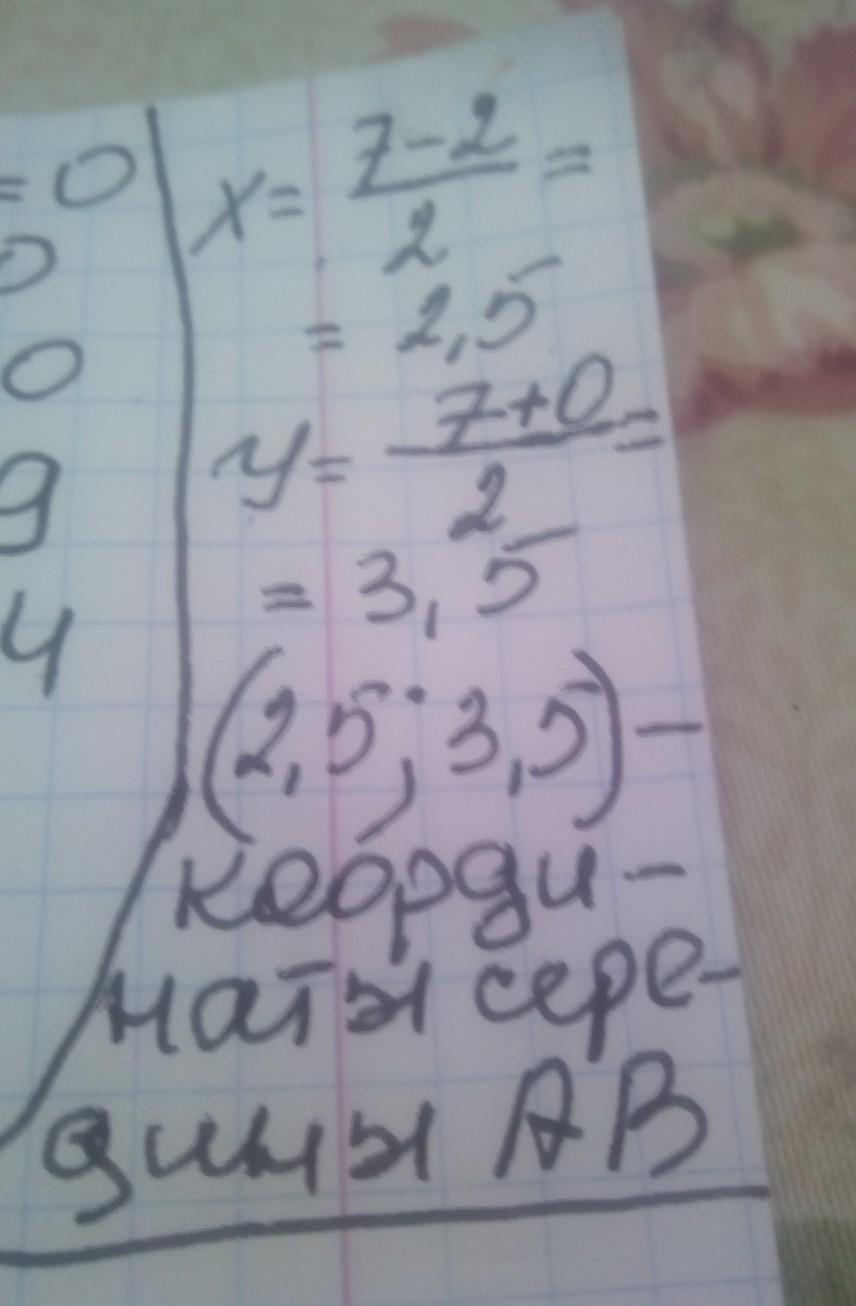 =0
0
0
9
4
x= 7-2/2 =
= 2,5
y= 7+0/2 =
= 3,5
(2,5; 3,5) –
коорди-
наты сере-
дины AB